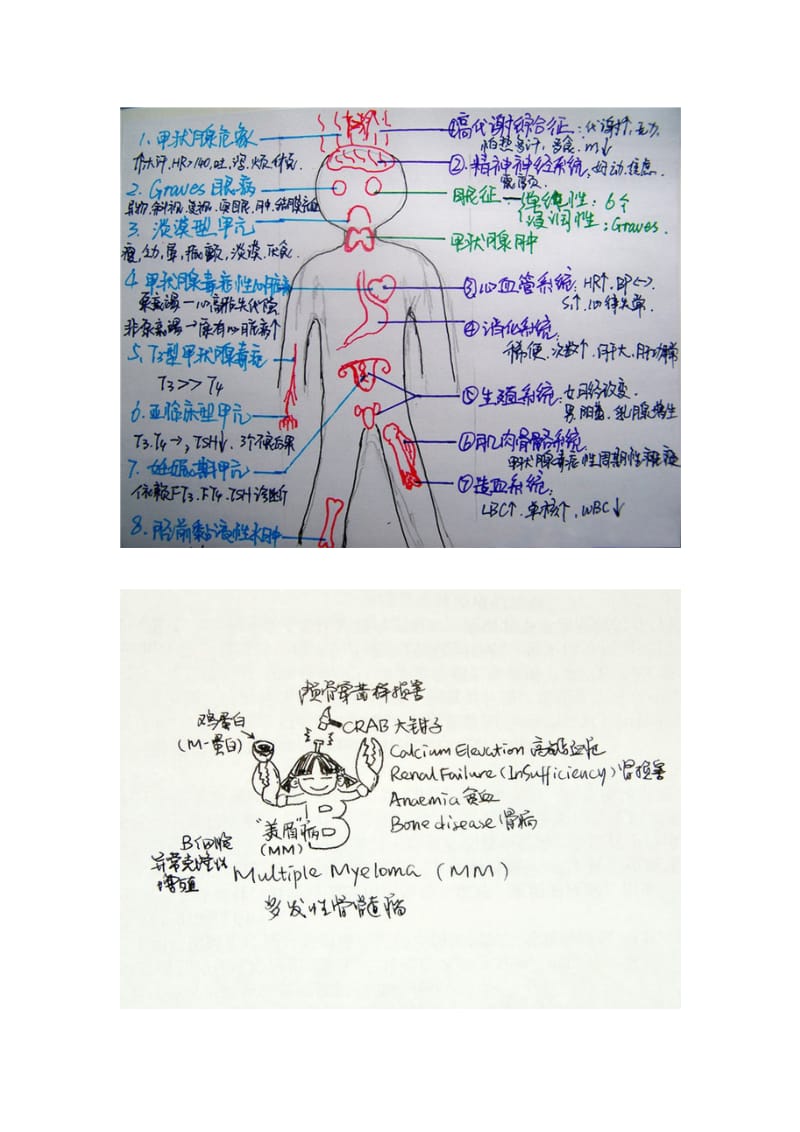 1. 甲状腺危象
大汗, HR>140, 吐, 泻, 烦
2. Graves眼病
3. 淡漠型甲亢
瘦, 幼, 晕, 震颤, 淡漠, 厌食
4. 甲状腺毒症性心脏病
非高输→原有心脏病↑
5. T3型甲状腺毒症
T3>>T4
6. 亚临床型甲亢
T3.T4→, TSH↓. 3个不良后果
7. 妊娠期甲亢
依赖FT3. FT4. TSH诊断
8. 胫前黏液性水肿
①高代谢综合征: 代谢↑, 乏力,
怕热多汗, 多食. m↓
②精神神经系统: 好动, 焦虑.
震颤.
眼征 单纯性: 6个
浸润性: Graves.
甲状腺肿
③心血管系统: HR↑. BP<->.
S↑. 心律失常
④消化系统:
稀便. 次数↑. 肝大. 肝功异常
⑤生殖系统: 女: 月经改变.
男: 阳萎. 乳腺增生
⑥肌肉骨骼系统
甲状腺毒症性周期性瘫痪
⑦造血系统:
LBC↑. 单核↑. WBC↓
颅骨穿凿样损害
鸡蛋白
(M-蛋白)
CRAB 大钳子
Calcium Elevation 高钙血症
Renal Failure (Insufficiency) 肾损害
Anaemia 贫血
Bone disease 骨病
"美眉"病
(MM)
B
B细胞
异常克隆
增殖
Multiple Myeloma (MM)
多发性骨髓瘤